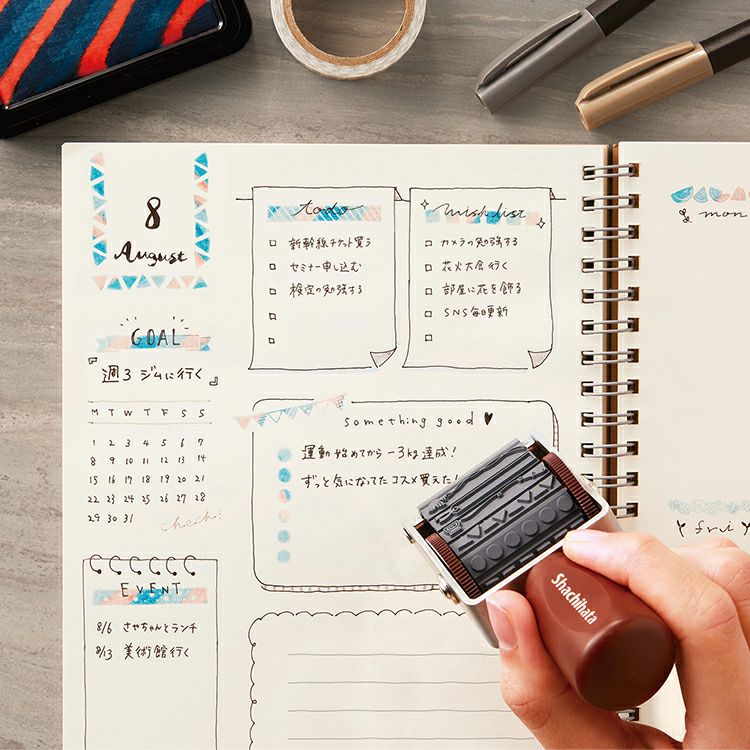 8
August
GOAL
『週3 ジムに行く』
M T W T F S S
1 2 3 4 5 6 7
8 9 10 11 12 13 14
15 16 17 18 19 20 21
22 23 24 25 26 27 28
29 30 31
check!
EVENT
8/6 さやちゃんとランチ
8/13 美術館行く
todo
新幹線チケット買う
セミナー申し込む
検定の勉強する
wish list
カメラの勉強する
花火大会行く
部屋に花を飾る
SNS毎日更新
something good ♥
運動始めてから -3kg達成!
ずっと気になってたコスメ買えた!
Shachihata
mon
fri